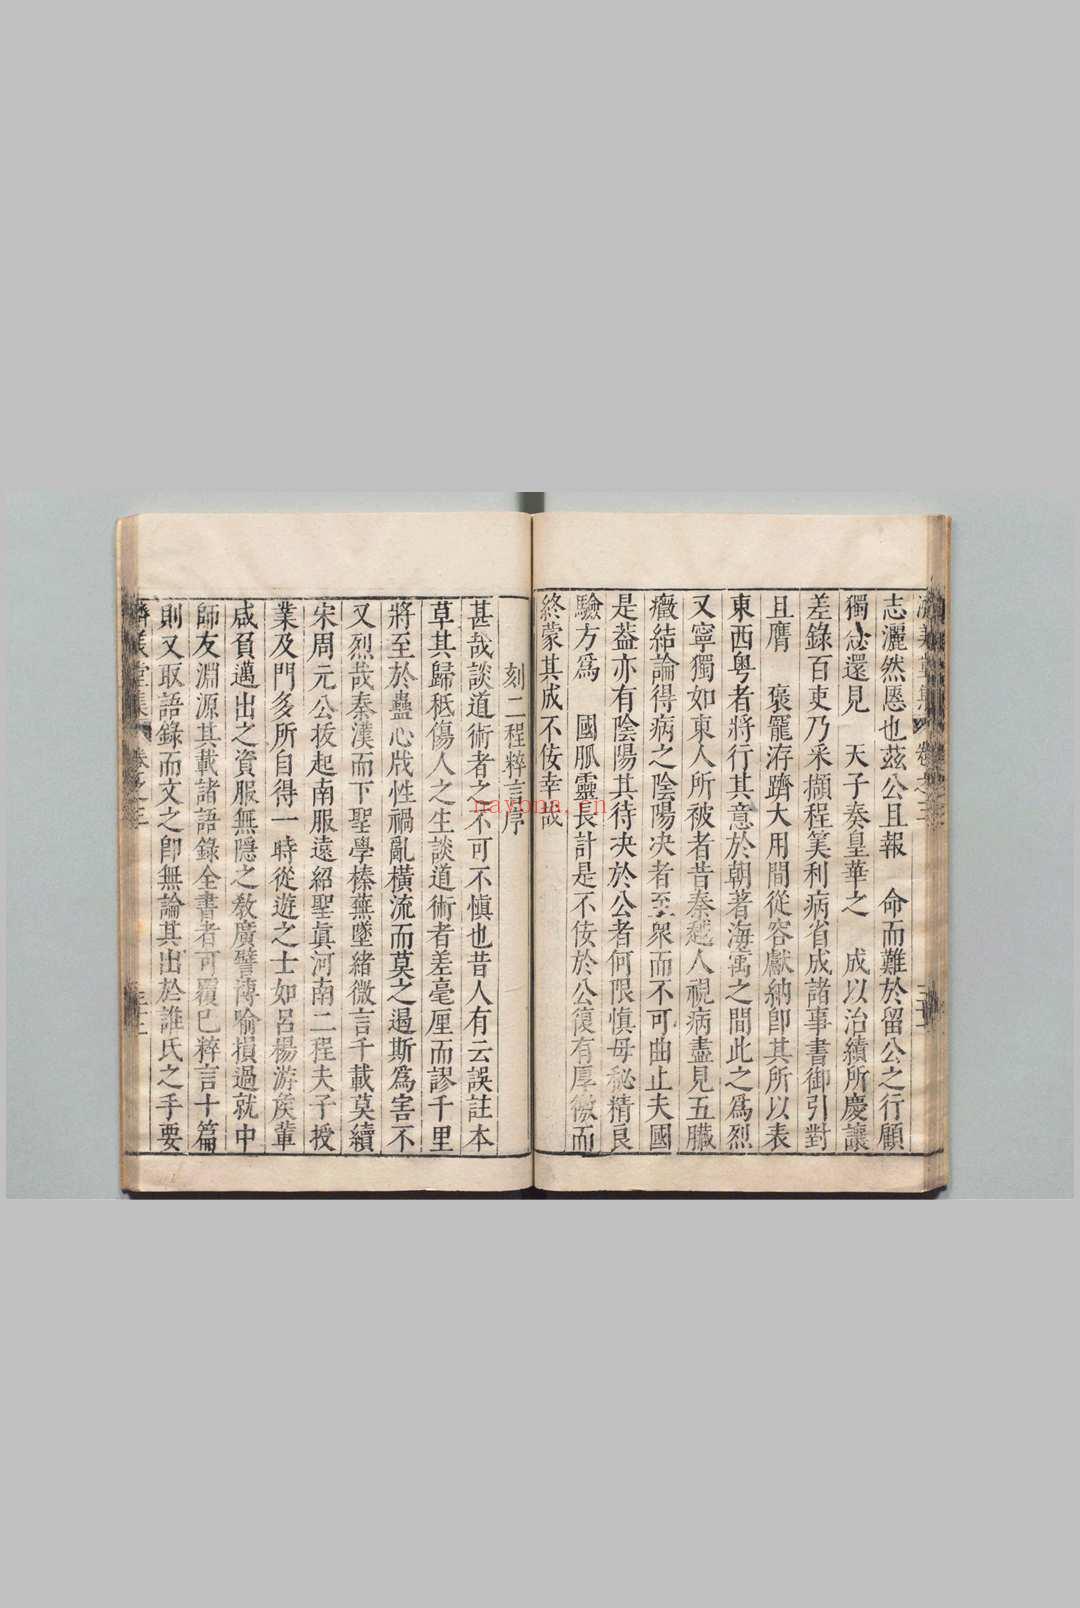 志灑然慝也茲公且報　命而難於留公之行顧
獨念還見　天子奏皇華之　成以治績所慶讓
差錄百吏乃采擷程筴利病省成諸事書御引對
且膺　褒寵洊躋大用間從容獻納卽其所以表
東西粤者將行其意於朝著海寓之間此之爲烈
又寧獨如東人所被者昔秦越人視病盡見五臟
癥結論得病之陰陽决者至衆而不可曲止夫國
是葢亦有陰陽其待决於公者何限慎毋秘精良
驗方爲　國脈靈長計是不佞於公復有厚徼而
終蒙其成不佞幸哉
刻二程粹言序
甚哉談道術者之不可不慎也昔人有云誤註本
草其歸秪傷人之生談道術者差毫厘而謬千里
將至於蠱心戕性禍亂橫流而莫之遏斯爲害不
又烈哉秦漢而下聖學榛蕪墜緒微言千載莫續
宋周元公抜起南服遠紹聖眞河南二程夫子授
業及門多所自得一時從遊之士如呂楊游矦輩
咸負邁出之資服無隱之教廣譬溥喻損過就中
師友淵源其載諸語錄全書者可覆已粹言十篇
則又取語錄而文之卽無論其出於誰氏之手要
堂集
卷之三
nayona.cn